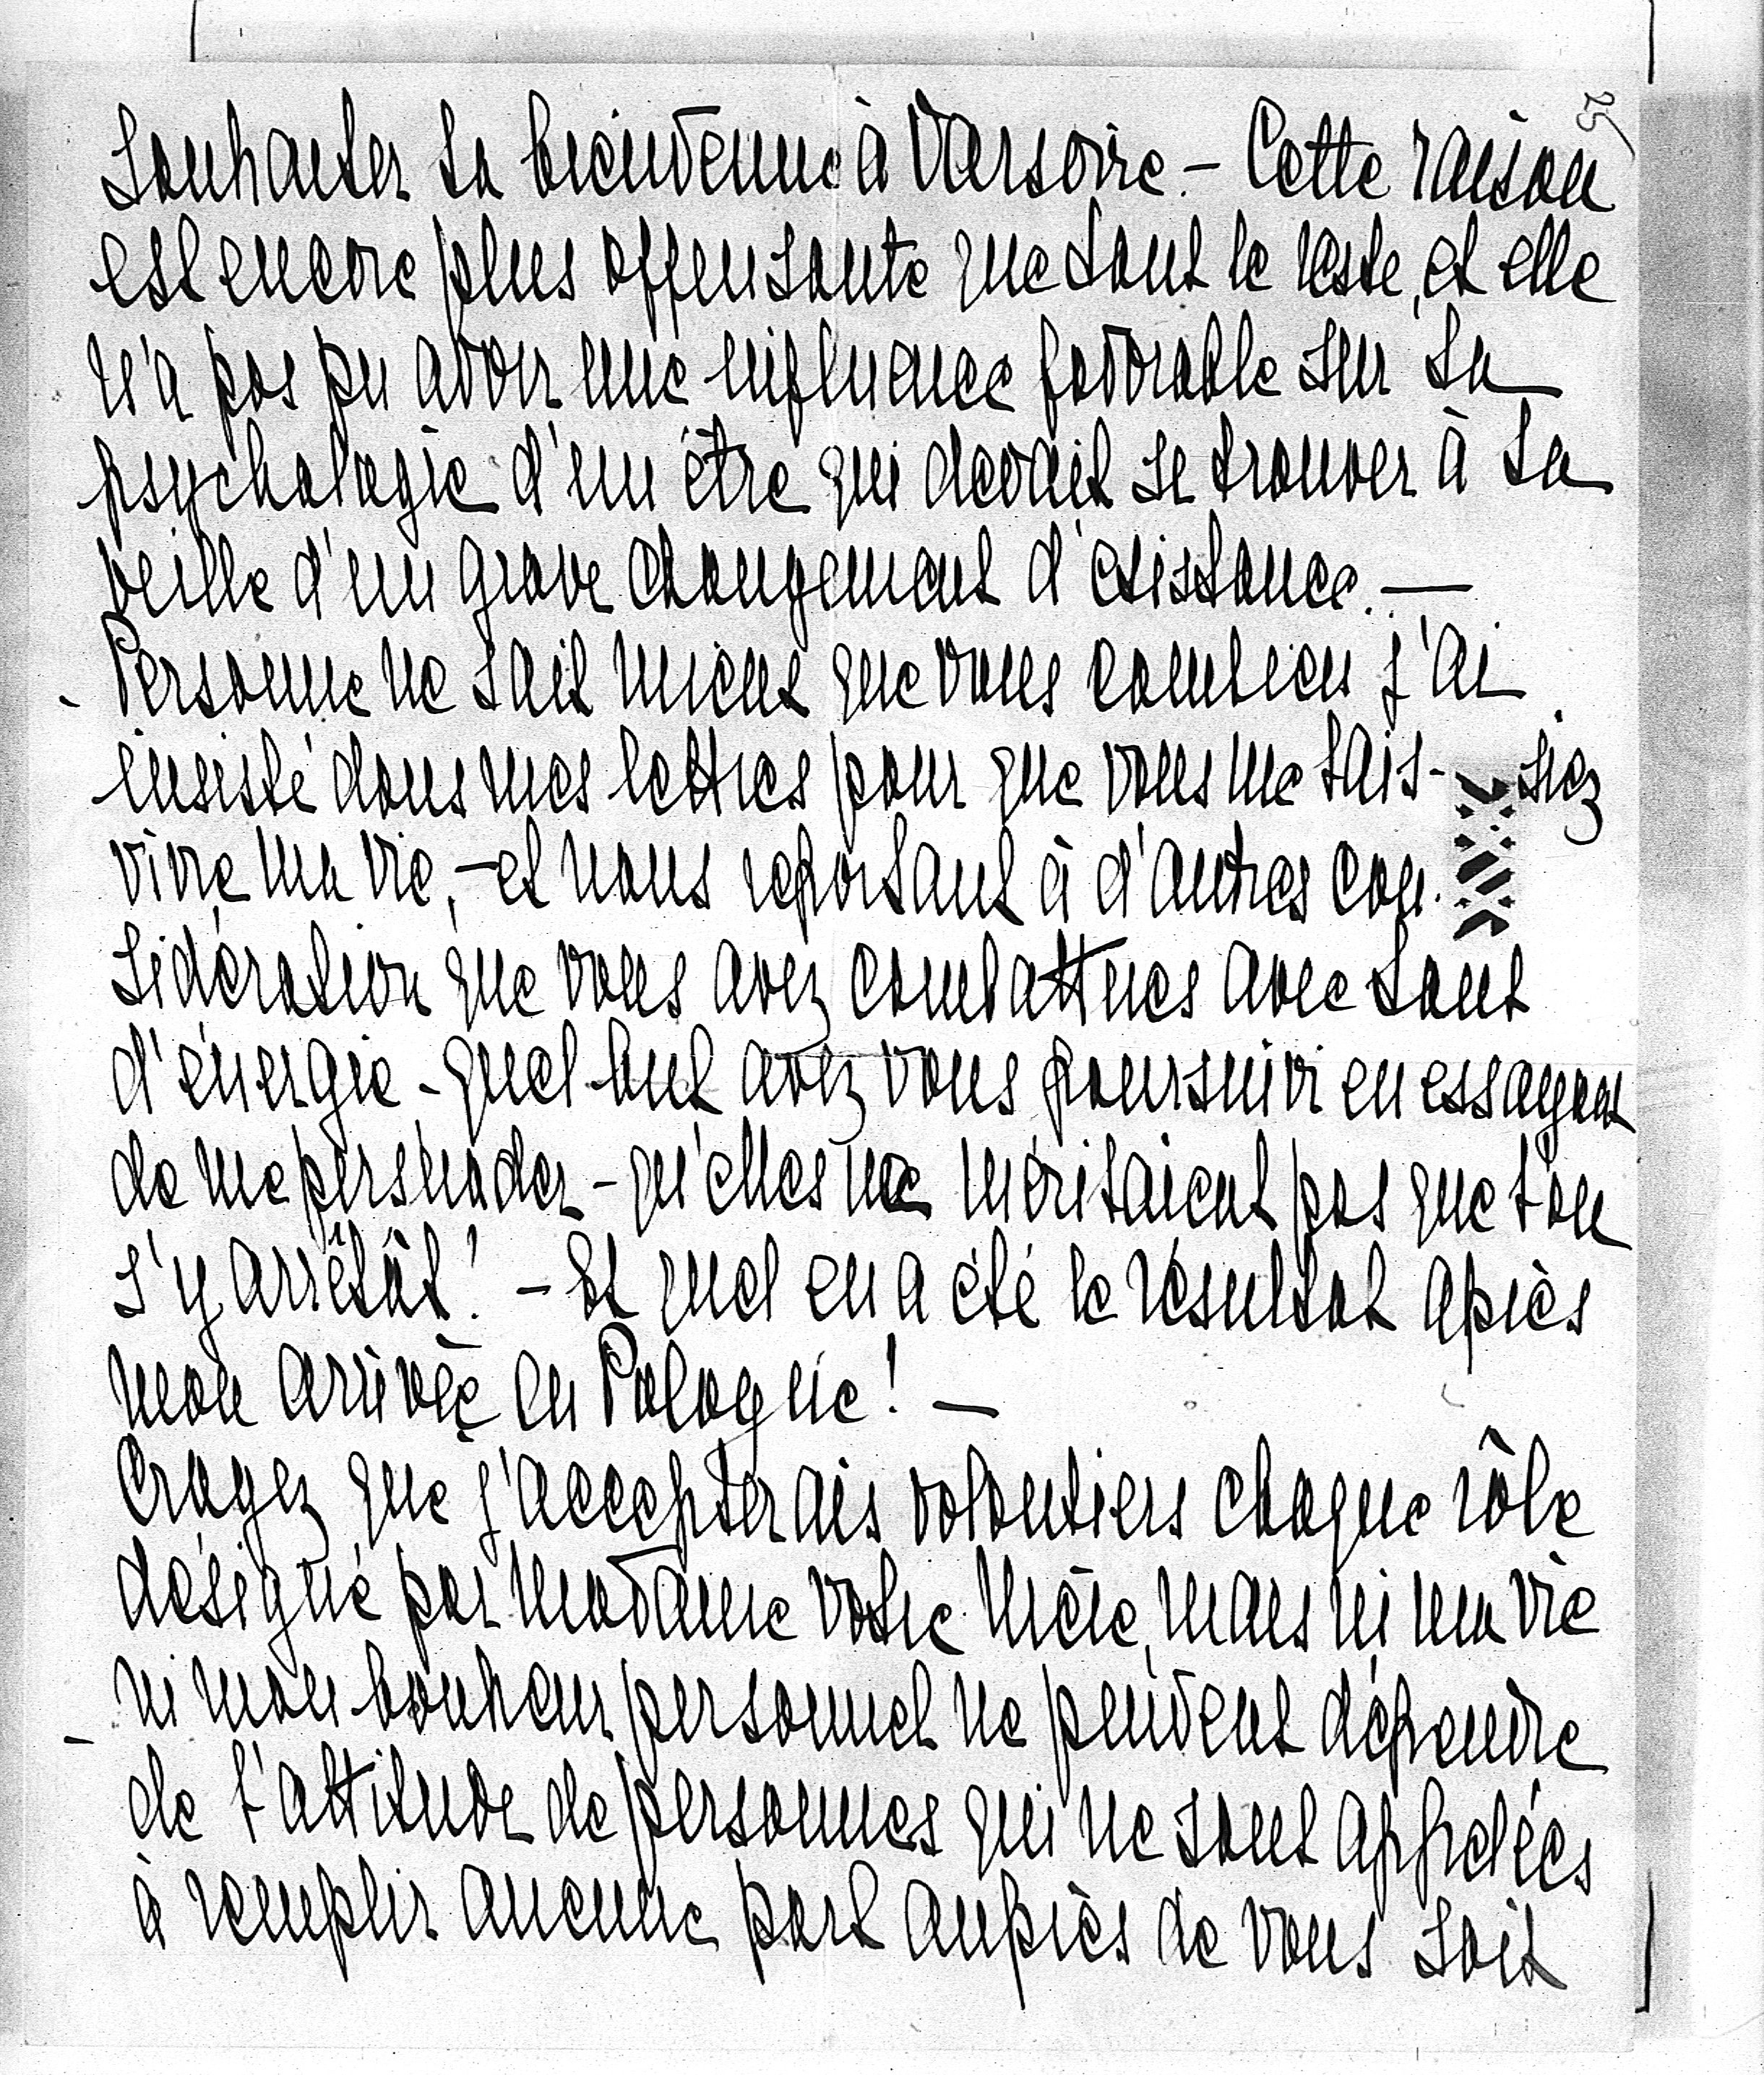 25
souhaiter la bienvenue à Varsovie. - Cette raison
est encore plus offensante que tout le reste, et elle
n'a pas pu avoir une influence favorable sur la
psychologie d'un être qui devait se trouver à la
veille d'un grave changement d'existance. —
Personne ne sait mieux que vous combien j'ai
insisté dans mes lettres pour que vous me lais- siez
vivre ma vie, - et nous reportant à d'autres con-
sidération que vous avez combattues avec tant
d'énergie - quel but avez vous poursuivi en essayant
de me persuader - qu'elles ne méritaient pas que l'on
s'y arrêtât! - Et quel en a été le résultat après
mon arrivée en Pologne! —
Croyez que j'accepterais volontiers chaque rôle
désigné par madame votre mère, mais ni ma vie
ni mon bonheur personnel ne peuvent dépendre
de l'attitude de personnes qui ne sont appelées
à remplir aucune part auprès de vous soit